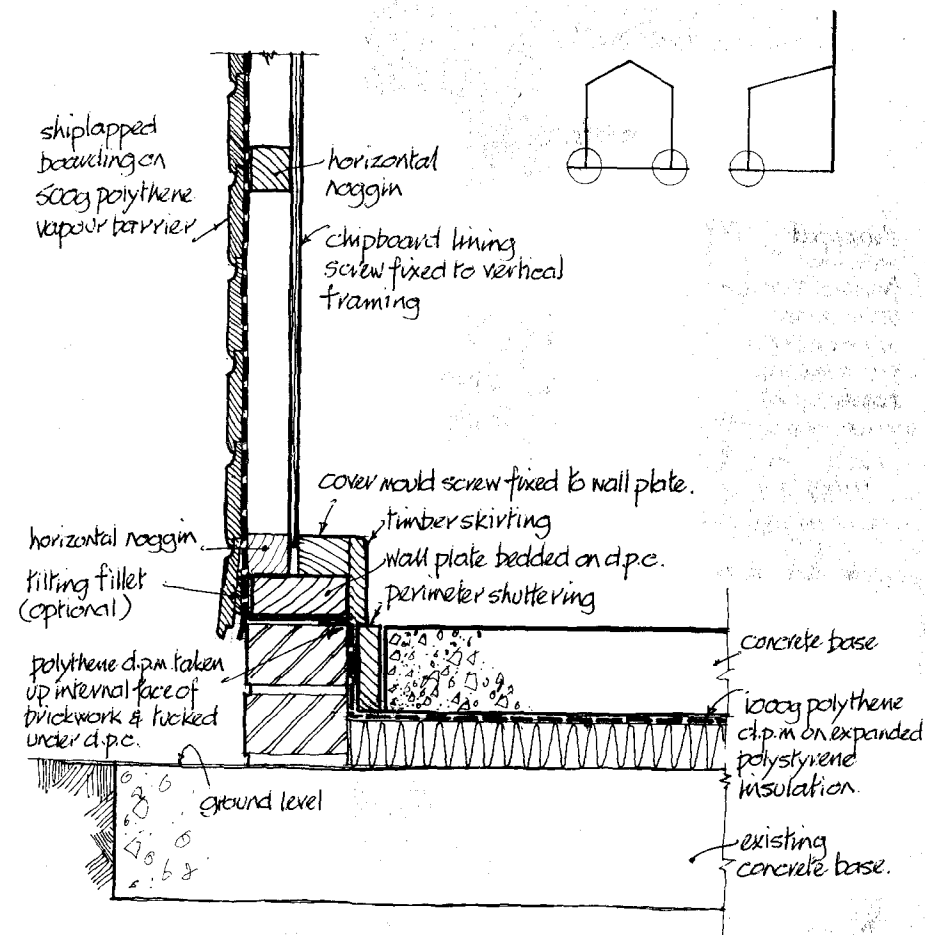 shiplapped
boarding on
500g polythene
vapour barrier
horizontal
noggin
chipboard lining
screw fixed to vertical
framing
cover mould screw fixed to wall plate.
timber skirting
horizontal noggin
wall plate bedded on d.p.c.
tilting fillet
(optional)
perimeter shuttering
polythene d.p.m. taken
up internal face of
brickwork & tucked
under d.p.c.
concrete base
1000g polythene
d.p.m on expanded
polystyrene
insulation.
ground level
existing
concrete base.